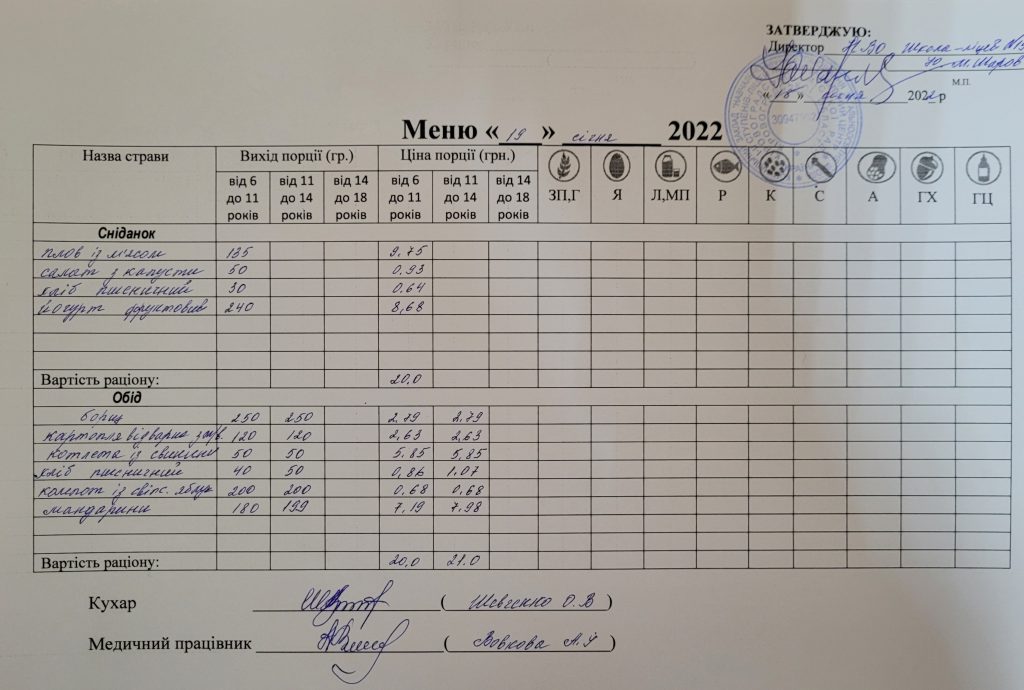 ЗАТВЕРДЖУЮ:
Директор НВО Школа-ліцей
М.П.
« 18 » січня 2022р
Меню « 19 » січня 2022
Назва страви Вихід порції (гр.) Ціна порції (грн.)
від 6 до 11 років від 11 до 14 років від 14 до 18 років від 6 до 11 років від 11 до 14 років від 14 до 18 років ЗП,Г Я Л,МП Р К С А ГХ ГЦ
Сніданок
плов із м'ясом 135 9,75
салат з капусти 50 0.93
хліб пшеничний 30 0.64
йогурт фруктовий 240 8,68
Вартість раціону: 20.0
Обід
борщ 250 250 2,79 2,79
картопля відварна 120 120 2,63 2,63
котлета із свинини 50 50 5,85 5,85
хліб пшеничний 40 50 0,86 1.07
компот із свіж. яблук 200 200 0,68 0,68
мандарини 180 199 7,19 7,98
Вартість раціону: 20,0 21.0
Кухар ( Шевченко О.В )
Медичний працівник ( Вовкова А. )